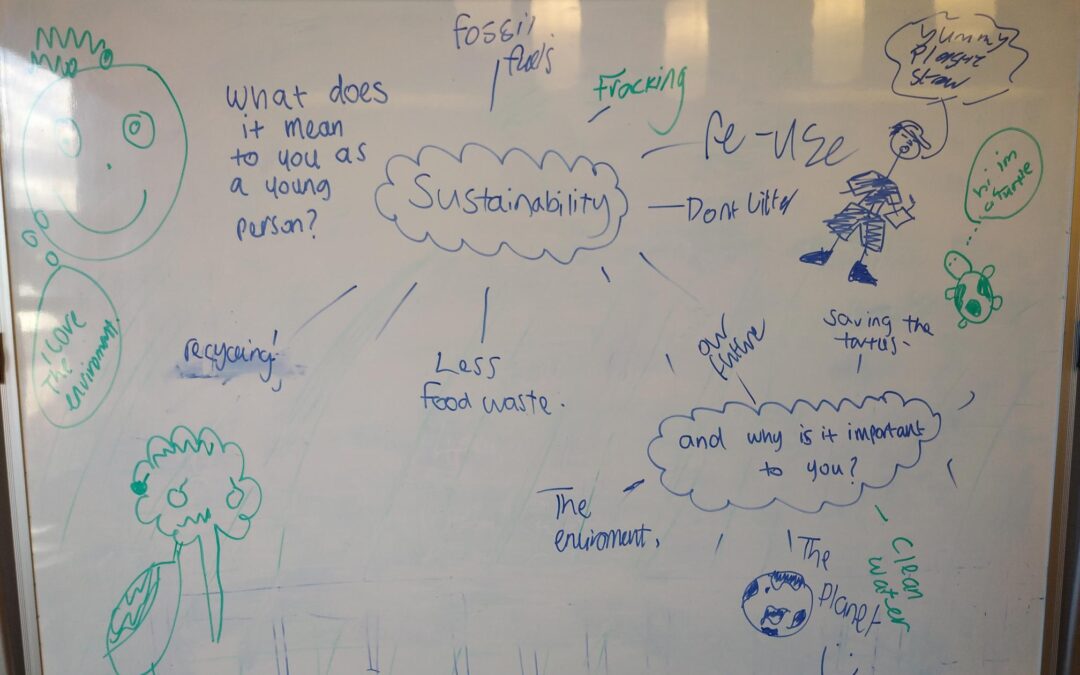 Fossil
fuels
Fracking
Yummy
Plastic
Straw
What does
it mean
to you as
a young
person?
Sustainability
Re-use
Dont Litter
hi im
a turtle
I love
the
environment
recycleing!
Less
food waste.
our
future
Saving the
turtles.
and why is it important
to you?
The
enviroment.
The
Planet
Clean
water